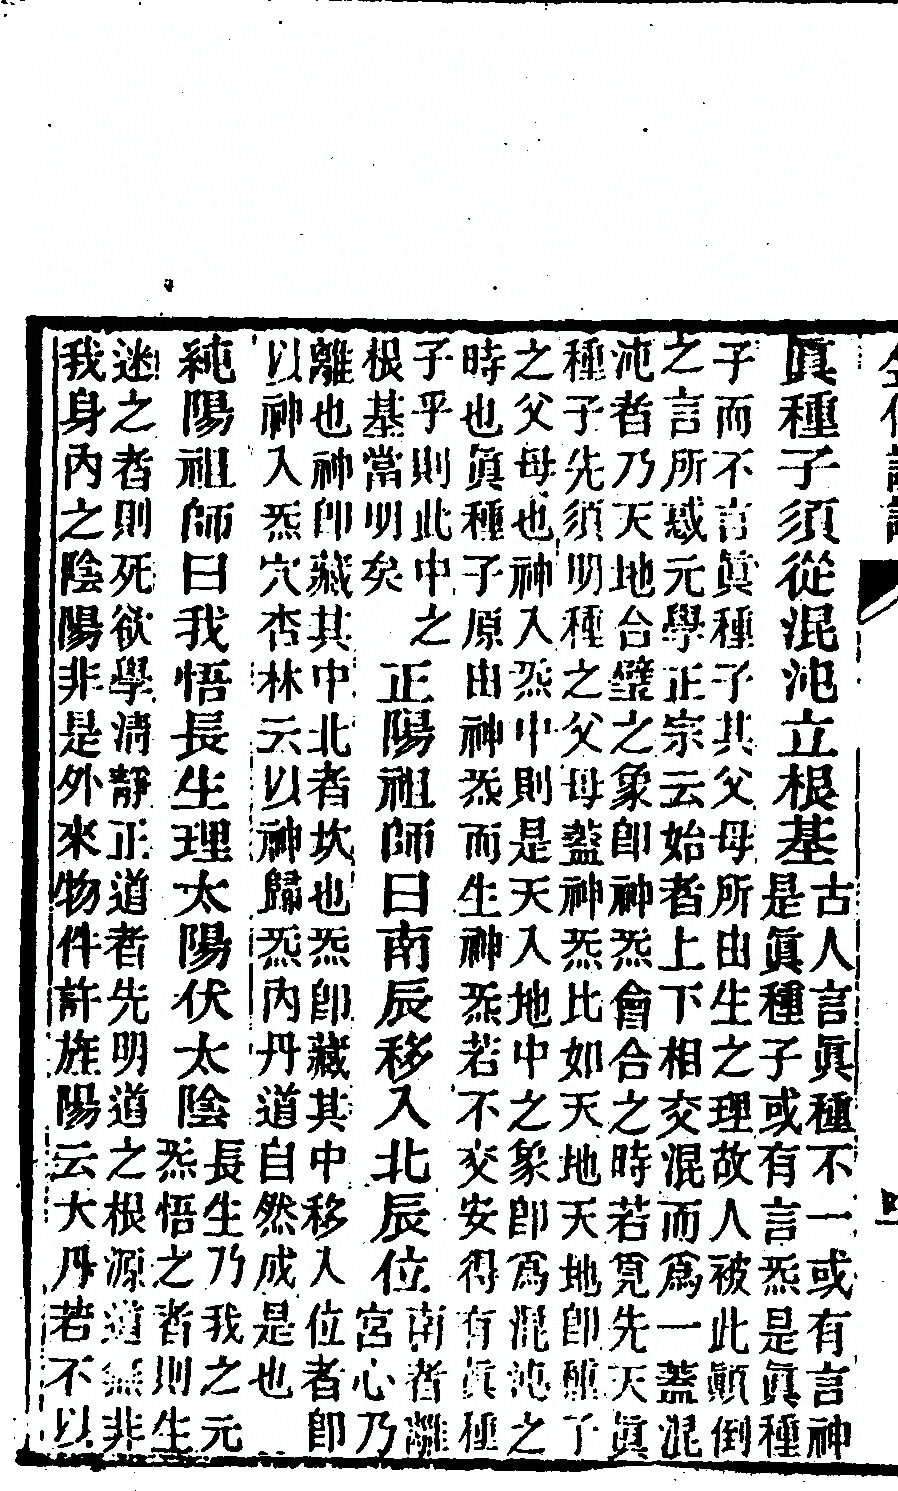 眞種子須從混沌立根基
古人言眞種不一或有言神
是眞種子或有言炁是眞種
子而不言眞種子其父母所由生之理故人被此顚倒
之言所惑元學正宗云始者上下相交混而爲一蓋混
沌者乃天地合璧之象卽神炁會合之時若覓先天眞
種子先須明種之父母蓋神炁比如天地天地卽種子
之父母也神入炁中則是天入地中之象卽爲混沌之
時也眞種子原由神炁而生神炁若不交安得有眞種
子乎則此中之
根基當明矣
正陽祖師曰南辰移入北辰位
南者離
宮心乃
離也神卽藏其中北者坎也炁卽藏其中移入位者卽
以神入炁穴杏林云以神歸炁內丹道自然成是也
純陽祖師曰我悟長生理太陽伏太陰
長生乃我之元
炁悟之者則生
迷之者則死欲學清靜正道者先明道之根源道無非
我身內之陰陽非是外來物件許旌陽云大丹若不以